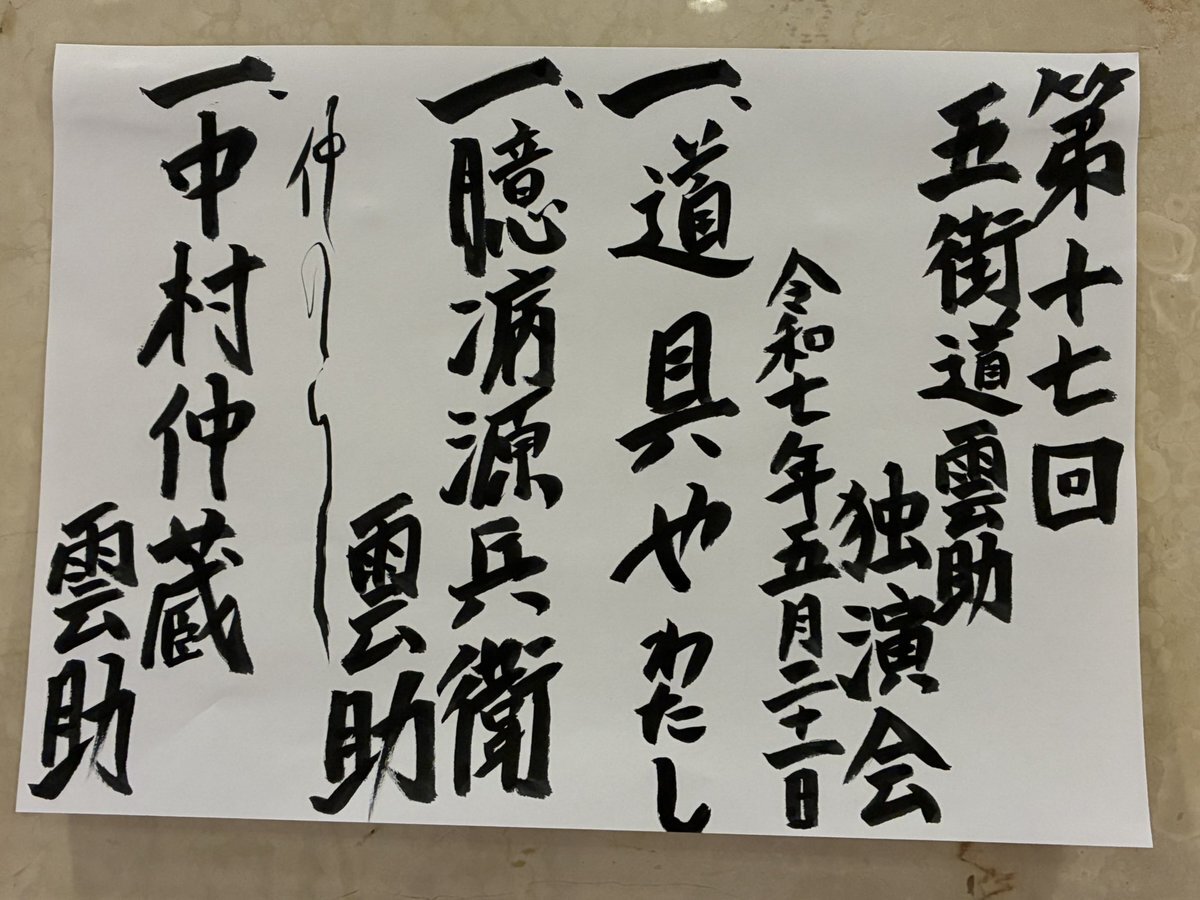 第十七回
五街道雲助
独演会
令和七年五月二十一日
一、道具や わたし
一、臆病源兵衛
雲助
仲入り
一、中村仲蔵
雲助